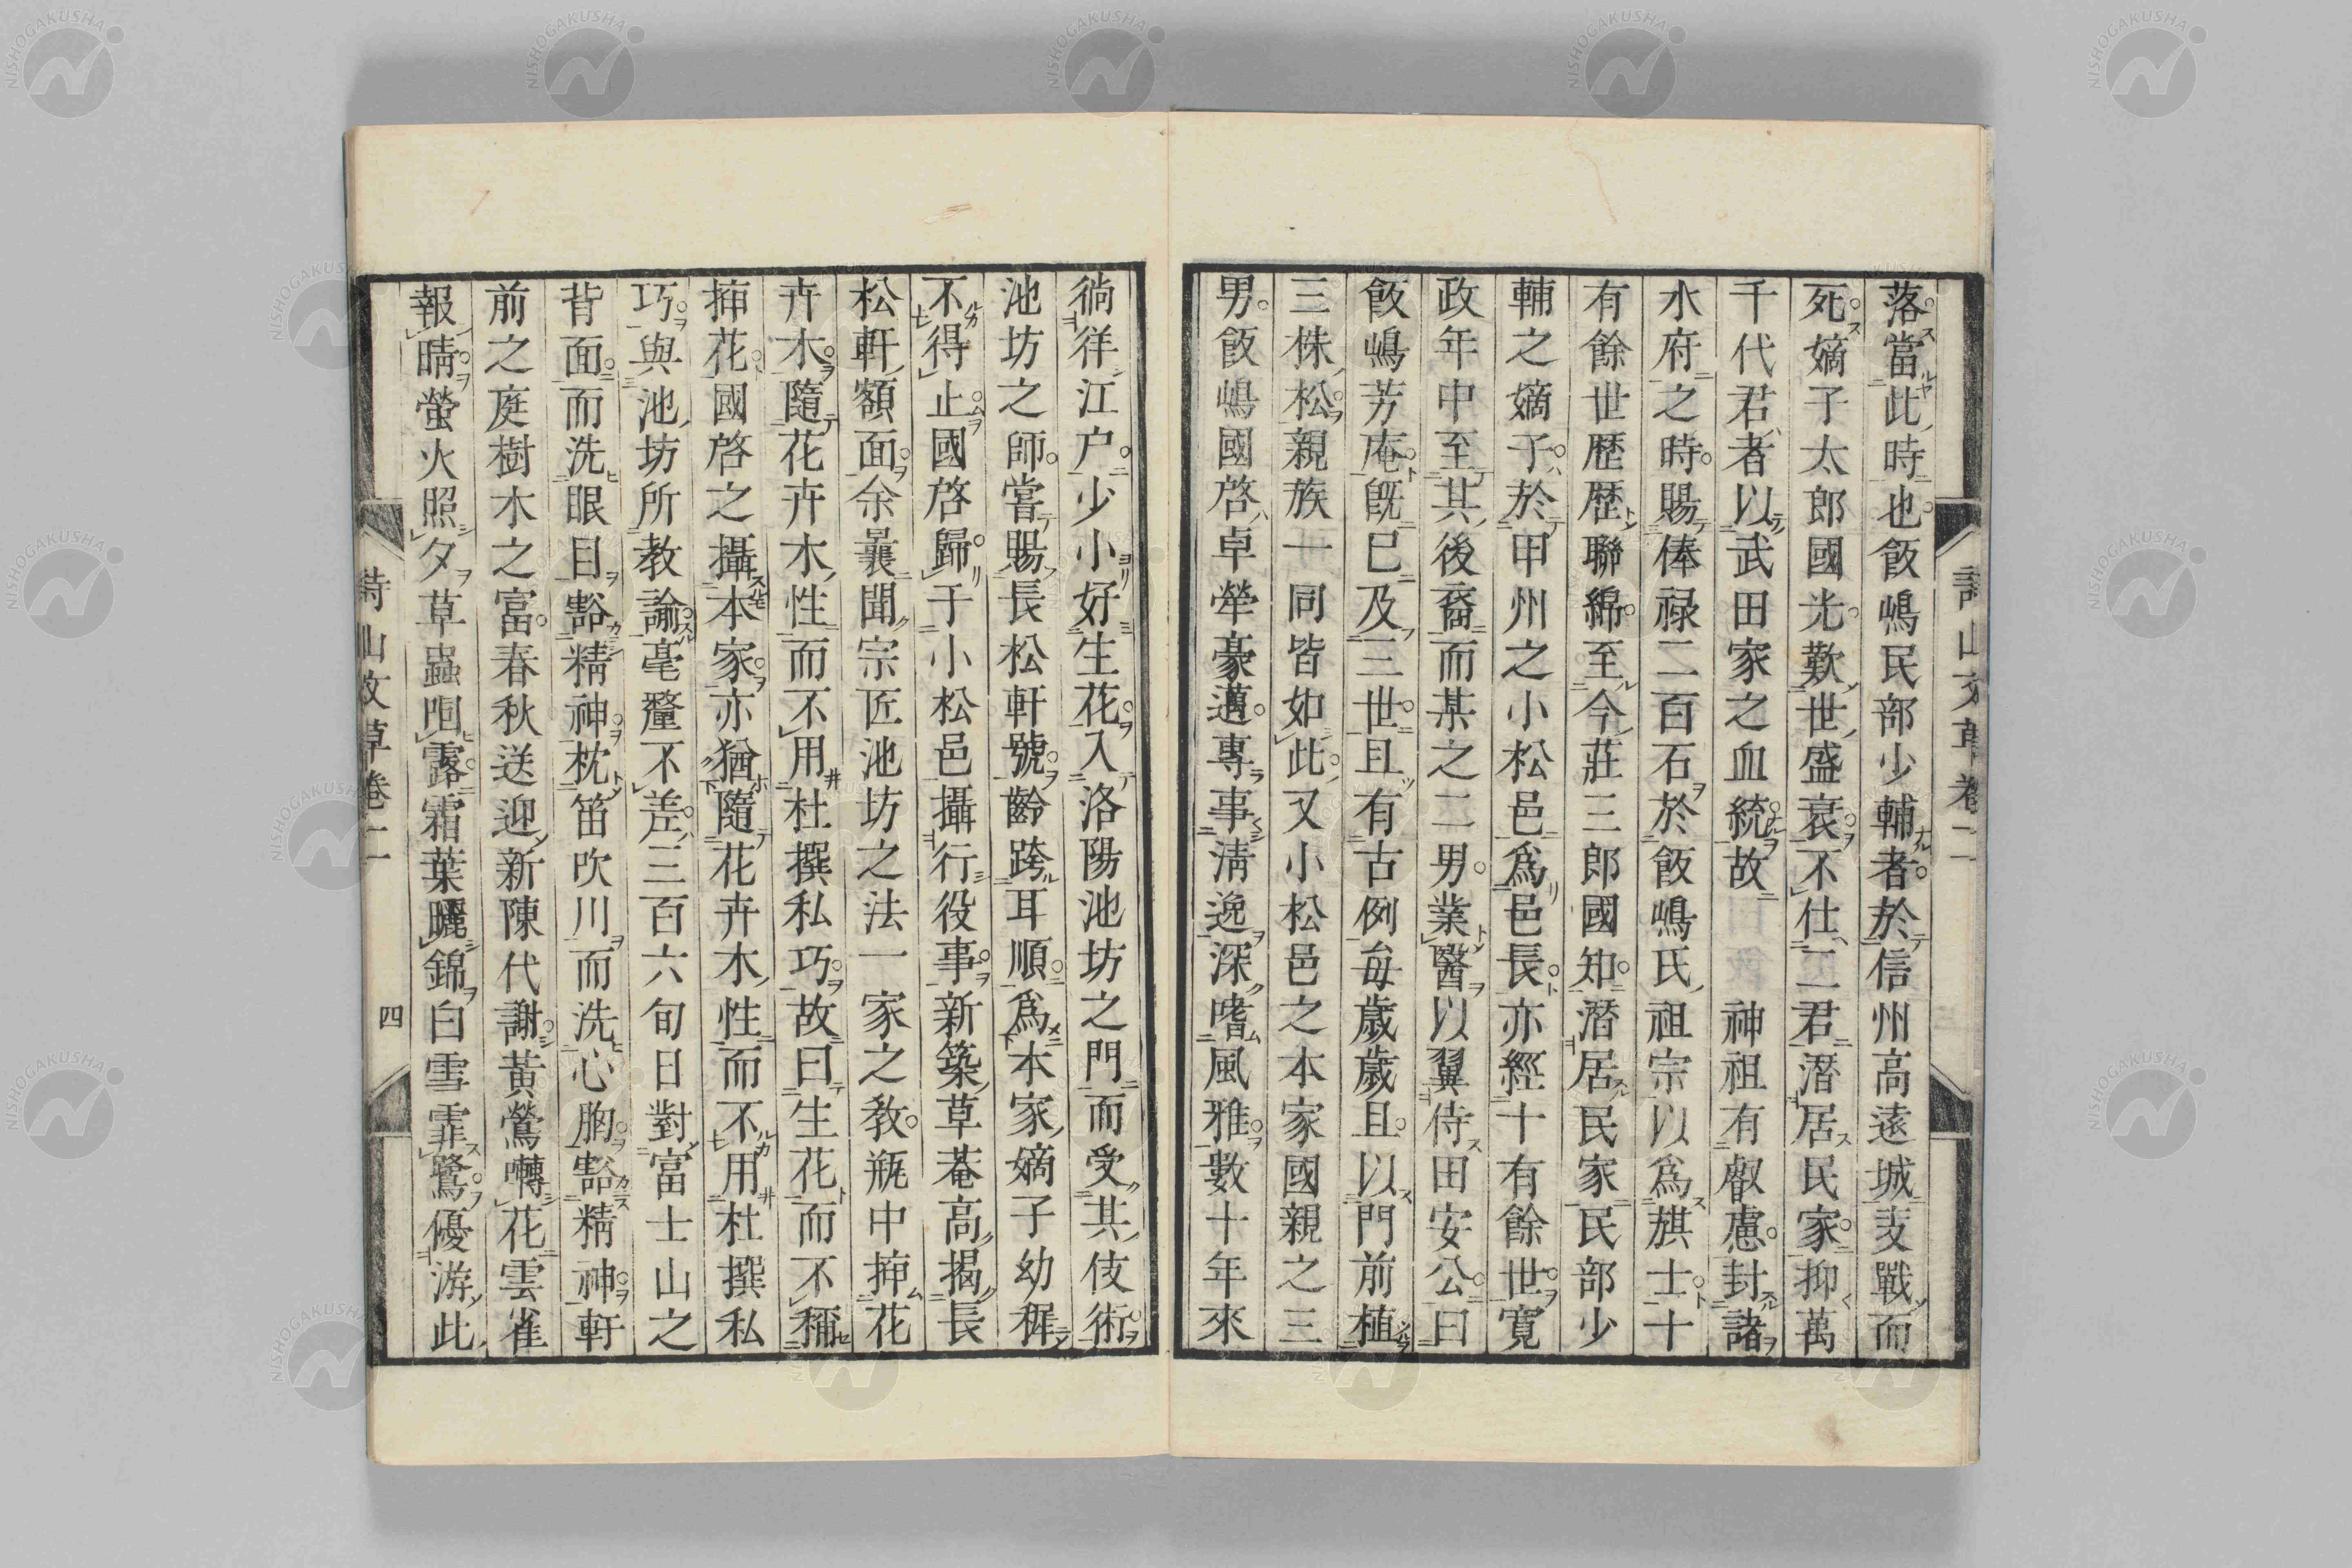 落當此時也飯嶋民部少輔者於信州高遠城麦戰而
死嫡子太郎國光歎世盛衰不仕二君潛居民家抑萬
千代君者以武田家之血統故 神祖有叡慮封諸
水府之時賜俸祿二百石於飯嶋氏祖宗以爲旗士十
有餘世歷歷聯綿至今莊三郎國知潛居民家民部少
輔之嫡子於甲州之小松邑爲邑長亦經十有餘世寬
政年中至其後裔而某之二男業醫以翼侍田安公曰
飯嶋芳庵旣已及三世且有古例每歲歲且以門前植
三株松親族一同皆如此又小松邑之本家國親之三
男飯嶋國啓卓犖豪邁專事淸逸深嗜風雅數十年來
徜徉江户少小好生花入洛陽池坊之門而受其伎術
池坊之師嘗賜長松軒號齡跨耳順爲本家嫡子幼穉
不得止國啓歸于小松邑攝行役事新築草菴高揭長
松軒額面余曩聞宗匠池坊之法一家之敎瓶中揷花
卉木隨花卉木性而不用杜撰私巧故曰生花而不稱
揷花國啓之攝本家亦猶隨花卉木性而不用杜撰私
巧與池坊所教諭毫釐不差三百六旬日對富士山之
背面而洗眼目豁精神枕笛吹川而洗心胸豁精神軒
前之庭樹木之富春秋送迎新陳代謝黃鶯囀花雲雀
報晴螢火照夕草蟲咽露霜葉曬錦白雪霏鷺優游此
詩山文草卷二
四
NISHOGAKUSHA